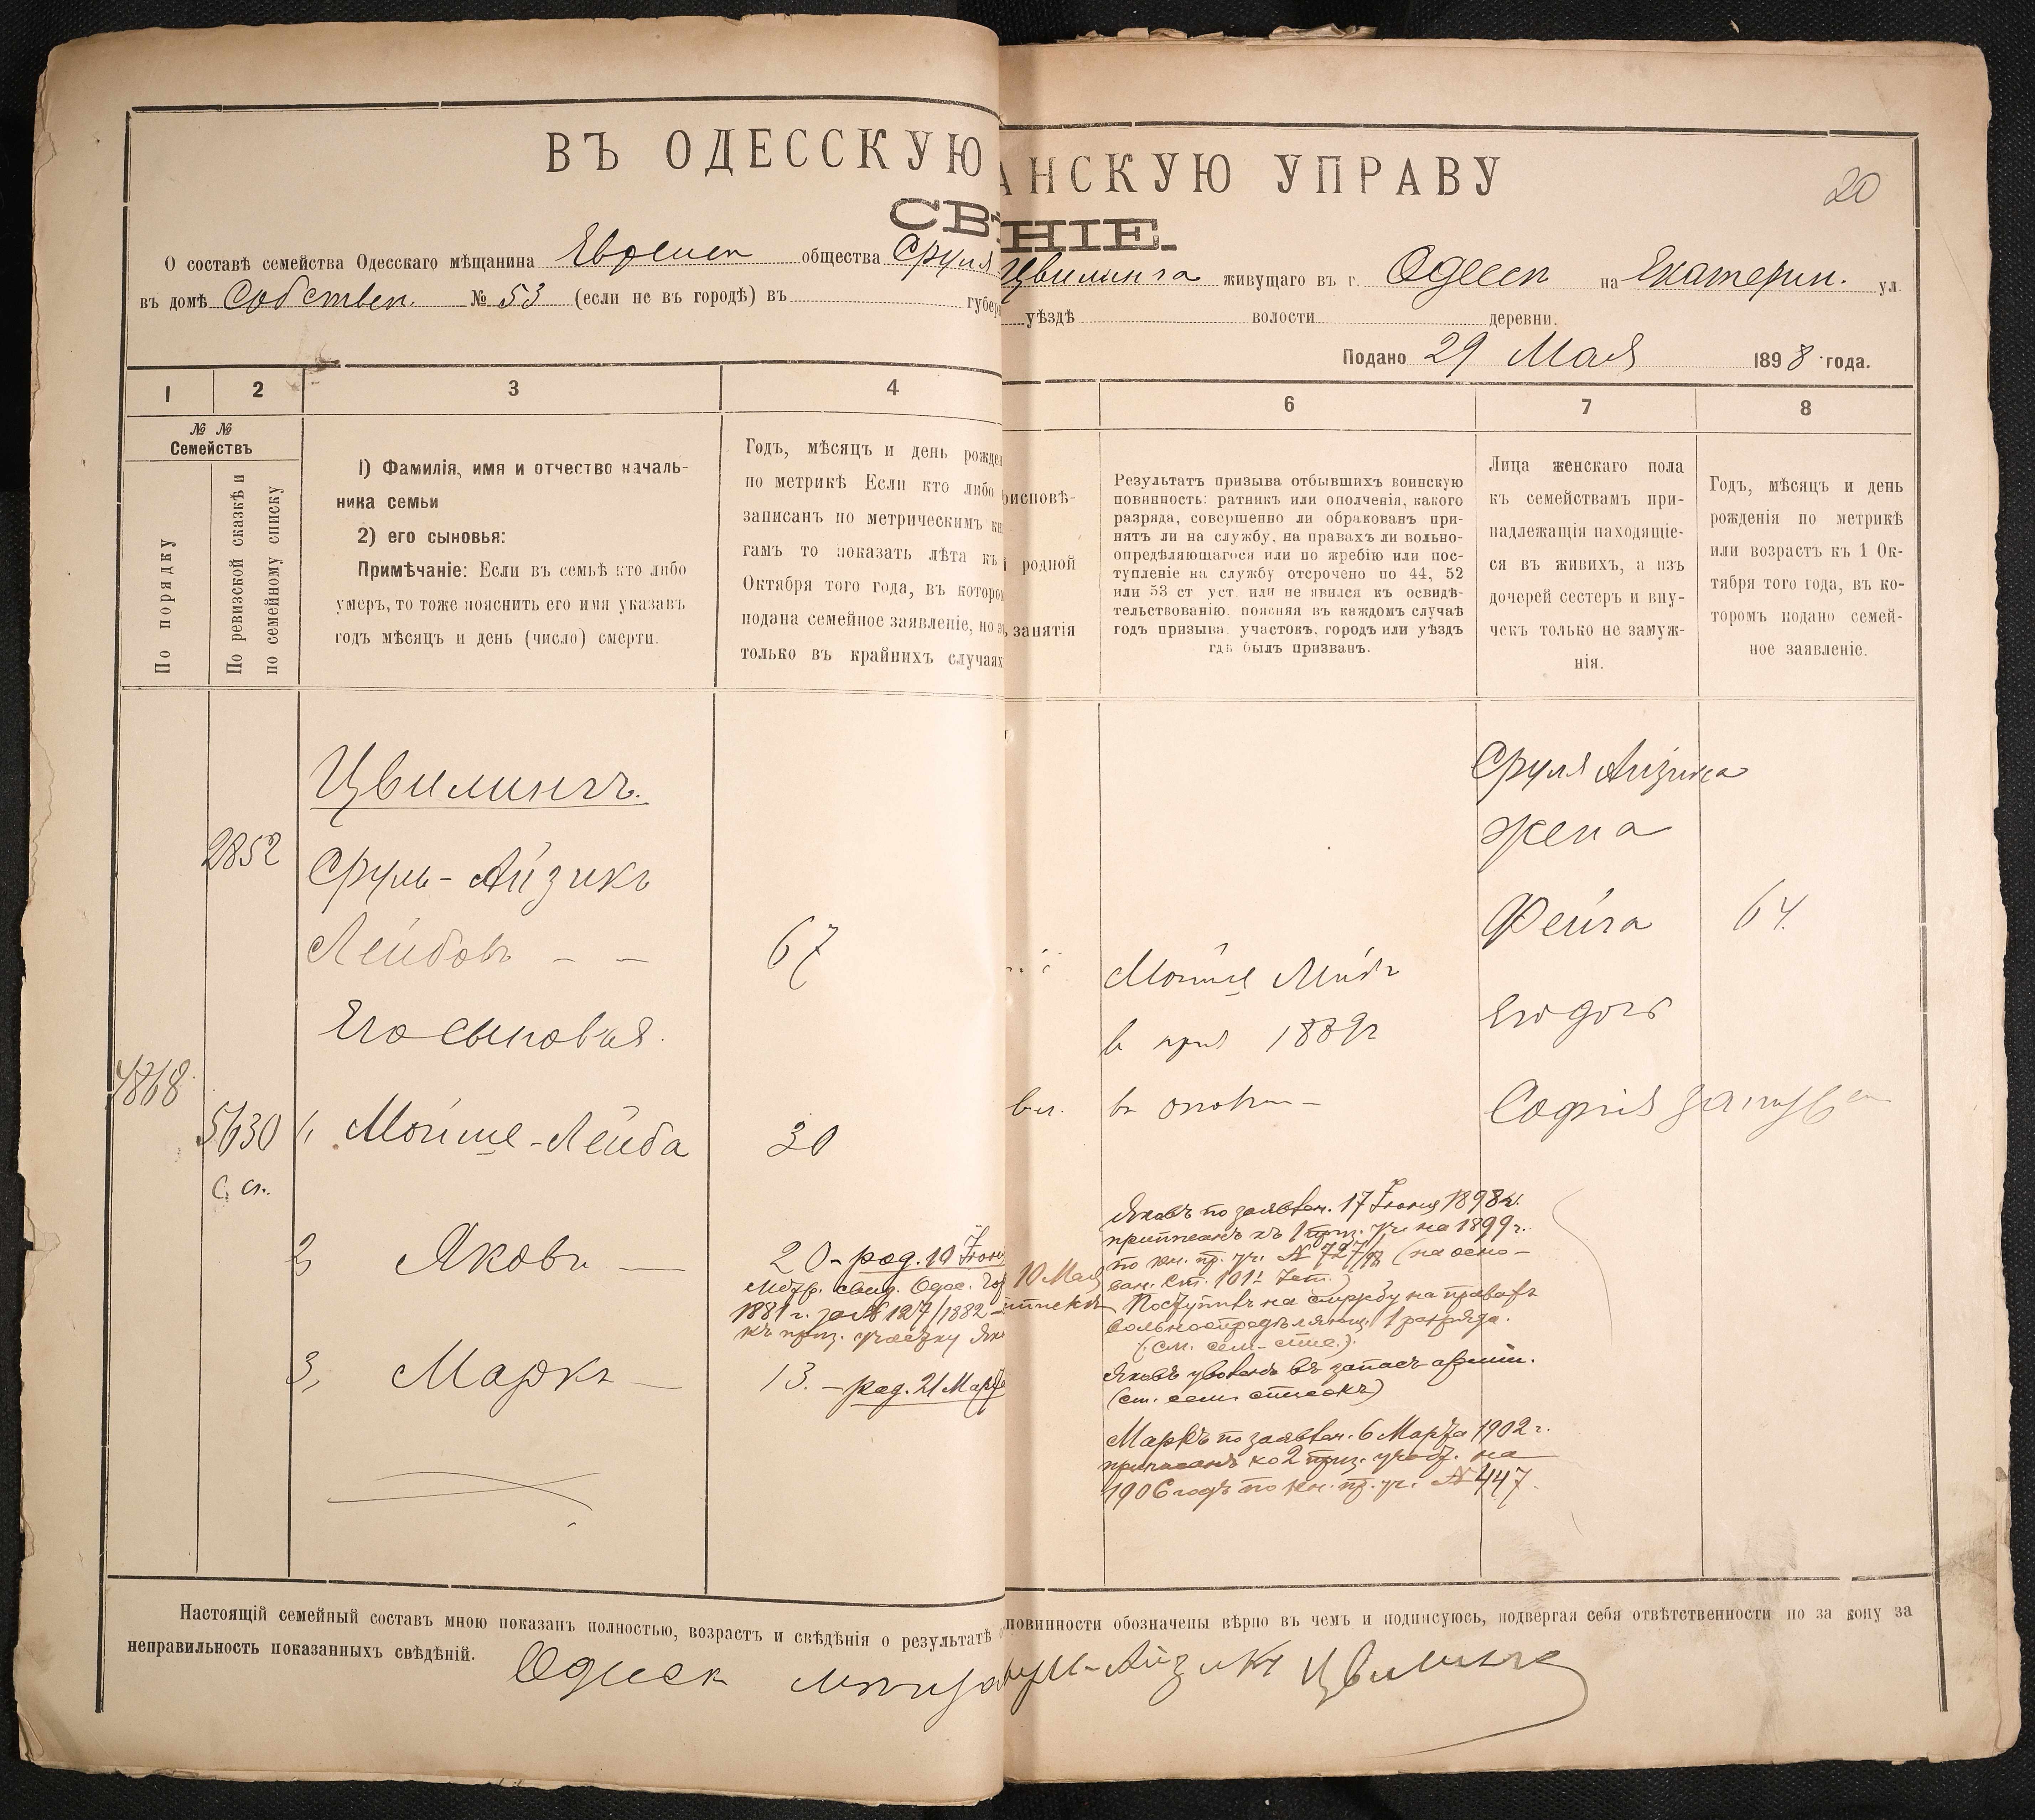 ВЪ ОДЕССКУЮ АНСКУЮ УПРАВУ
20
СВѢ НІЕ.
О составѣ семейства Одесскаго мѣщанина Евреиск общества Сруля Цвилинга живущаго въ г. Одесск на Екатерин. ул.
въ домѣ Собствен. № 53 (если не въ городѣ) въ губер уѣздѣ волости деревни.
Подано 29 Мая 1898 года.
1 2 3 4 6 7 8
№ №
Семействъ
По порядку
По ревизской сказкѣ и
по семейному списку
1) Фамилія, имя и отчество началь-
ника семьи
2) его сыновья:
Примѣчаніе: Если въ семьѣ кто либо
умеръ, то тоже пояснить его имя указавъ
годъ мѣсяцъ и день (число) смерти.
Годъ, мѣсяцъ и день рожде
по метрикѣ Если кто либо
записанъ по метрическимъ кн
гамъ то показать лѣта къ
Октября того года, въ которо
подана семейное заявленіе, но э
только въ крайнихъ случаях
оисповѣ-
родной
занятія
Результатъ призыва отбывшихъ воинскую
повинность: ратникъ или ополченія, какого
разряда, совершенно ли обракованъ при-
нятъ ли на службу, на правахъ ли вольно-
опредѣляющагося или по жребію или пос-
тупленіе на службу отсрочено по 44, 52
или 53 ст уст или не явился къ освидѣ-
тельствованію. поясняя въ каждомъ случаѣ
годъ призыва. участокъ, городъ или уѣздъ
гдѣ былъ призванъ.
Лица женскаго пола
къ семействамъ при-
надлежащія находящіе-
ся въ живихъ, а изъ
дочерей сестеръ и вну-
чекъ только не замуж-
нія.
Годъ, мѣсяцъ и день
рожденія по метрикѣ
или возрастъ къ 1 Ок-
тября того года, въ ко-
торомъ подано семей-
ное заявленіе.
Цвилингъ.
2852
Сруль-Айзикъ
Лейбовъ – – 67
Его сыновья.
4868
5630 1, Мойше-Лейба 30
с. сп.
2 Яковъ — 20 – род. 10 Іюн
Метр. свид. Одес. Го
1881 г. за № 127/1882 –
къ приз. участку Як
3, Маркъ — 13. – род. 21 Март
10 Мая
Мойше Лейб
в приз 1889г
в ополч –
Яковъ по заявлен. 17 Іюня 1898 г.
приписанъ къ 1 приз. уч. на 1899 г.
по кн. пр. уч. № 727/97 (на осно-
ван. Ст. 101 Уст.)
Поступилъ на службу на правахъ
вольноопредѣляющ. 1 разряда.
(см. сем. спис.)
Яковъ уволенъ въ запасъ арміи.
(см. сем. списокъ)
Маркъ по заявлен. 6 Марта 1902 г.
приписанъ ко 2 приз. участ. на
1906 годъ по кн. пр. уч. № 447.
Сруля Айзика
жена
Фейга 64.
Его доч
Софія замуж
Настоящій семейный составъ мною показанъ полностью, возрастъ и свѣдѣнія о результатѣ о повинности обозначены вѣрно въ чемъ и подписуюсь, подвергая себя отвѣтственности по за кону за
неправильность показанныхъ свѣдѣній.
Одесск мещан Сруль-Айзикъ Цвилинг